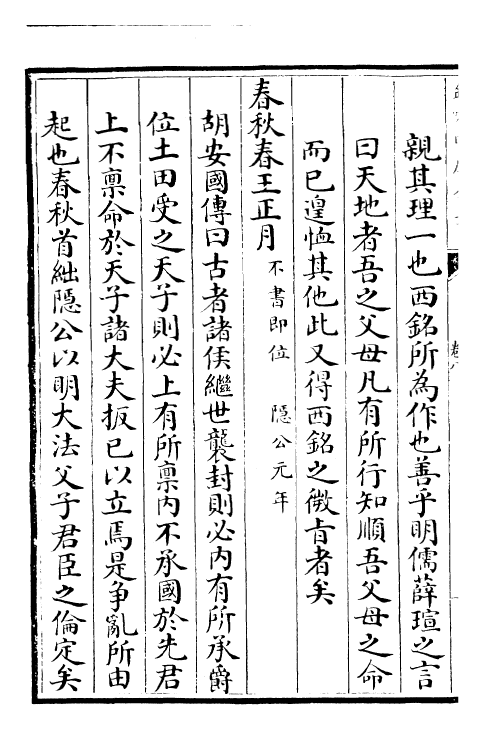 親其理一也西銘所為作也善乎明儒薛瑄之言
曰天地者吾之父母凡有所行知順吾父母之命
而已遑恤其他此又得西銘之微㫖者矣
春秋春王正月 不書即位 隱公元年
胡安國傳曰古者諸侯繼世襲封則必内有所承爵
位土田受之天子則必上有所禀内不承國於先君
上不禀命於天子諸大夫扳已以立焉是争亂所由
起也春秋首絀隱公以明大法父子君臣之倫定矣